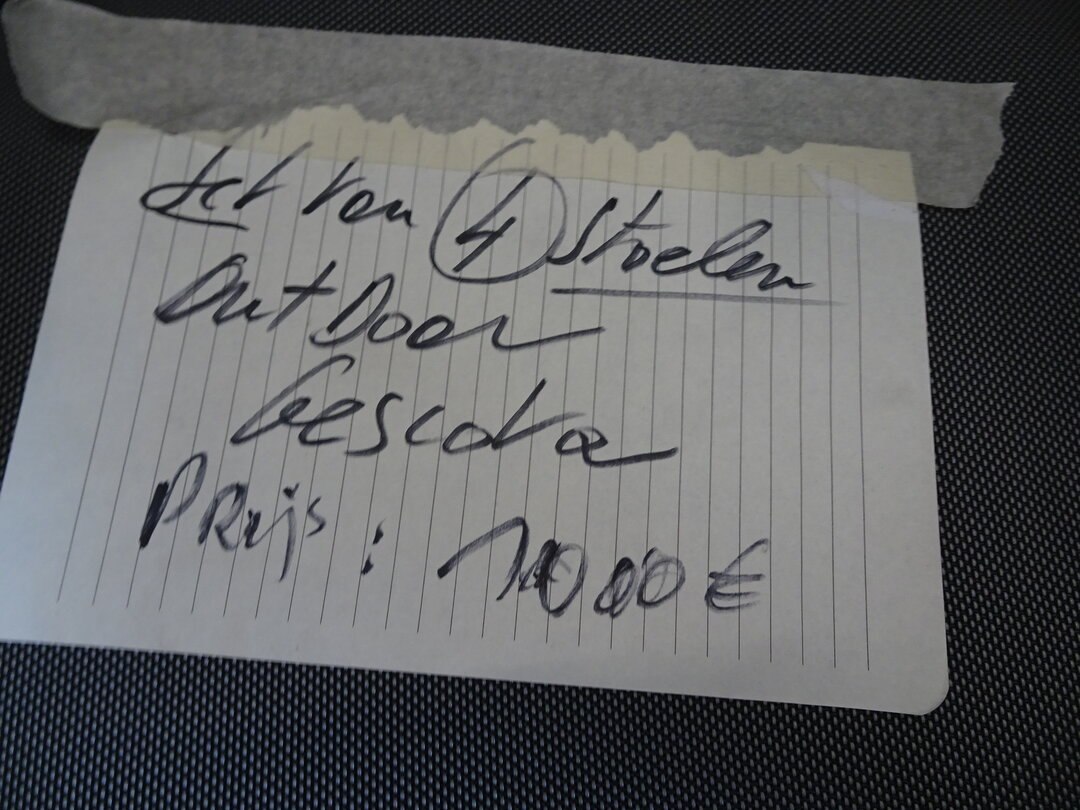 Set van 4 Stoelen
Out Door
Gescova
Prijs : 1000€